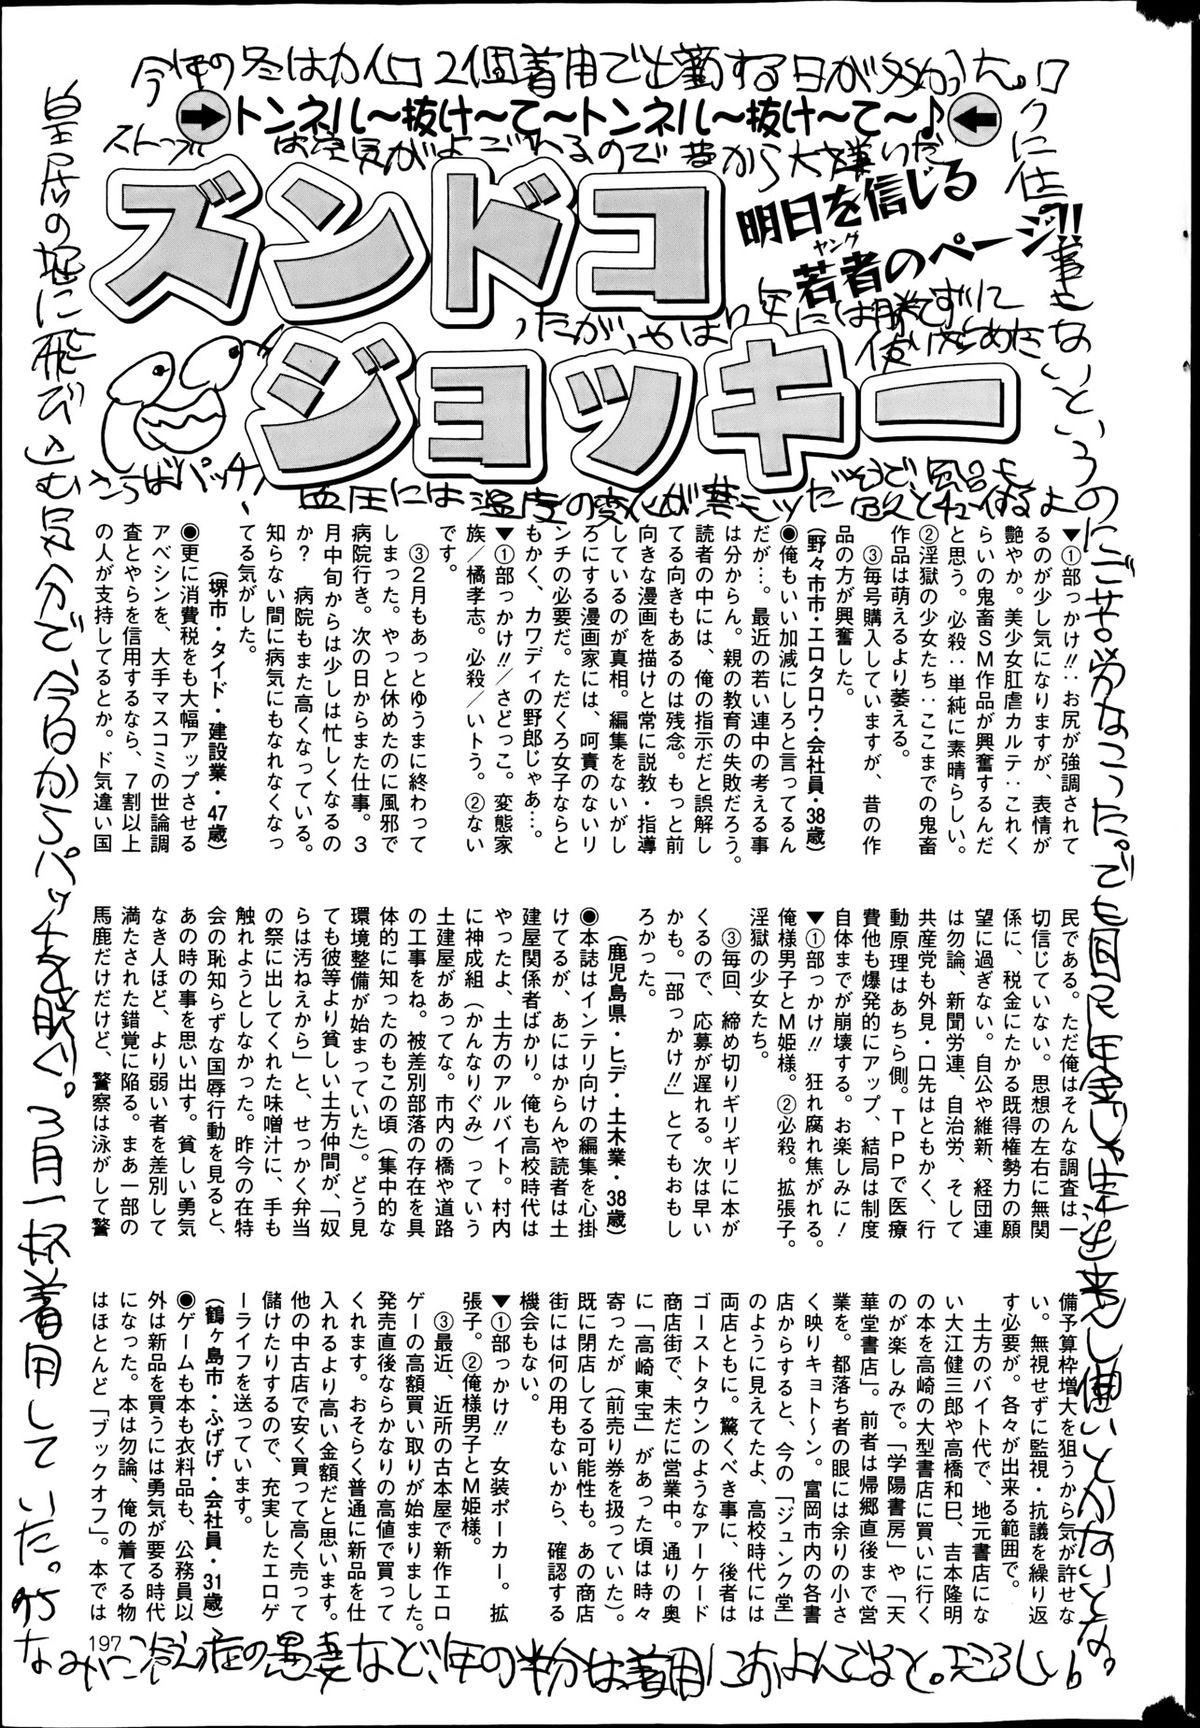 今年の冬はカイロ2個着用で出勤する日が多かった。ロクに仕事もないというのにご苦労なこった。でも
トンネル〜抜け〜て〜トンネル〜抜け〜て〜♪
ストーブは空気がよごれるので昔から大嫌いだ
ズンドコジョッキー
明日を信じる若者のページ!!
ヤング
ったが、やはり年には勝てずに使い始めた
血圧には温度の変化が
▼①部っかけ!!‥お尻が強調されて
るのが少し気になりますが、表情が
艶やか。美少女肛虐カルテ‥これく
らいの鬼畜SM作品が興奮するんだ
と思う。必殺‥単純に素晴らしい。
②淫獄の少女たち‥ここまでの鬼畜
作品は萌えるより萎える。
③毎号購入していますが、昔の作
品の方が興奮した。
(野々市市・エロタロウ・会社員・38歳)
◉俺もいい加減にしろと言ってるん
だが…。最近の若い連中の考える事
は分からん。親の教育の失敗だろう。
読者の中には、俺の指示だと誤解し
てる向きもあるのは残念。もっと前
向きな漫画を描けと常に説教・指導
しているのが真相。編集をないがし
ろにする漫画家には、呵責のないリ
ンチの必要だ。ただくろ女子ならと
もかく、カワディの野郎じゃあ…。
▼①部っかけ!!／さどっこ。変態家
族／橘孝志。必殺／いトう。②ない
です。
③2月もあっとゆうまに終わって
しまった。やっと休めたのに風邪で
病院行き。次の日からまた仕事。3
月中旬からは少しは忙しくなるの
か？　病院もまた高くなっている。
知らない間に病気にもなれなくなっ
てる気がした。
(堺市・タイド・建設業・47歳)
◉更に消費税をも大幅アップさせる
アベシンを、大手マスコミの世論調
査とやらを信用するなら、7割以上
の人が支持してるとか。ド気違い国
民である。ただ俺はそんな調査は一
切信じていない。思想の左右に無関
係に、税金にたかる既得権勢力の願
望に過ぎない。自公や維新、経団連
は勿論、新聞労連、自治労、そして
共産党も外見・口先はともかく、行
動原理はあちら側。TPPで医療
費他も爆発的にアップ、結局は制度
自体までが崩壊する。お楽しみに！
▼①部っかけ!!　狂れ腐れ焦がれる。
俺様男子とM姫様。②必殺。拡張子。
淫獄の少女たち。
③毎回、締め切りギリギリに本が
くるので、応募が遅れる。次は早い
かも。「部っかけ!!」とてもおもし
ろかった。
(鹿児島県・ヒデ・土木業・38歳)
◉本誌はインテリ向けの編集を心掛
けてるが、あにはからんや読者は土
建屋関係者ばかり。俺も高校時代は
やったよ、土方のアルバイト。村内
に神成組（かんなりぐみ）っていう
土建屋があってな。市内の橋や道路
の工事をね。被差別部落の存在を具
体的に知ったのもこの頃（集中的な
環境整備が始まっていた）。どう見
ても彼等より貧しい土方仲間が、「奴
らは汚ねえから」と、せっかく弁当
の祭に出してくれた味噌汁に、手も
触れようとしなかった。昨今の在特
会の恥知らずな国辱行動を見ると、
あの時の事を思い出す。貧しい勇気
なき人ほど、より弱い者を差別して
満たされた錯覚に陥る。まあ一部の
馬鹿だけだけど、警察は泳がして警
備予算枠増大を狙うから気が許せな
い。無視せずに監視・抗議を繰り返
す必要が。各々が出来る範囲で。
土方のバイト代で、地元書店にな
い大江健三郎や高橋和巳、吉本隆明
の本を高崎の大型書店に買いに行く
のが楽しみで。「学陽書房」や「天
華堂書店」。前者は帰郷直後まで営
業を。都落ち者の眼には余りの小さ
く映りキョト〜ン。富岡市内の各書
店からすると、今の「ジュンク堂」
のように見えてたよ、高校時代には
両店ともに。驚くべき事に、後者は
ゴーストタウンのようなアーケード
商店街で、未だに営業中。通りの奥
に「高崎東宝」があった頃は時々
寄ったが（前売り券を扱っていた）、
既に閉店してる可能性も。あの商店
街には何の用もないから、確認する
機会もない。
▼①部っかけ!!　女装ポーカー。拡
張子。②俺様男子とM姫様。
③最近、近所の古本屋で新作エロ
ゲーの高額買い取りが始まりました。
発売直後ならかなりの高値で買って
くれます。おそらく普通に新品を仕
入れるより高い金額だと思います。
他の中古店で安く買って高く売って
儲けたりするので、充実したエロゲ
ーライフを送っています。
(鶴ヶ島市・ふげげ・会社員・31歳)
◉ゲームも本も衣料品も、公務員以
外は新品を買うには勇気が要る時代
になった。本は勿論、俺の着てる物
はほとんど「ブックオフ」。本では
皇居の堀に飛び込む覚悟で、今日からパッチを脱ぐ。3月一杯着用していた。
なみに冷え症の愚妻など、年の半分は着用におよんでると。恐ろしい
さらばパッチ！
197